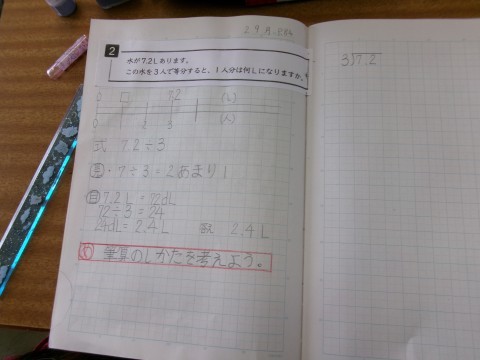 2
水が7.2Lあります。
この水を3人で等分すると、1人分は何Lになりますか。
0 □ 7.2 (L)
0 1 2 3 (人)
式 7.2÷3
・7÷3=2あまり1
自 7.2L=72dL
72÷3=24
24dL=2.4L 答え 2.4L
筆算のしかたを考えよう。
3)7.2